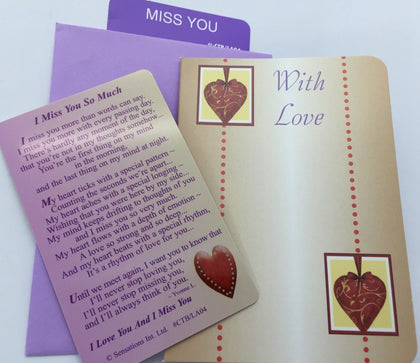 MISS YOU
#CTB/LA04
I Miss You So Much
I miss you more than words can say.
I miss you more with every passing day,
There's hardly any moment of the day,
that you're not in my thoughts somehow...
You're the first thing on my mind
in the morning,
and the last thing on my mind at night.
My heart ticks with a special pattern ~
Counting the seconds we're apart...
My heart aches with a special longing ~
Wishing that you were here by my side...
My mind keeps drifting to thoughts of you
and I miss you so very much.
My heart flows with a depth of emotion ~
A love so strong and so deep...
And my heart beats with a special rhythm,
It's a rhythm of love for you...
Until we meet again, I want you to know that
I'll never stop loving you,
I'll never stop missing you,
and I'll always think of you.
~ Yvonne L.
I Love You And I Miss You
© Sensations Int. Ltd. #CTB/LA04
With
Love